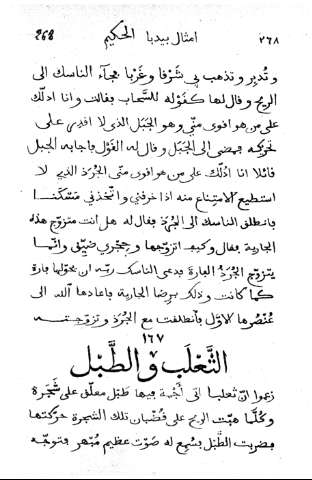 ٢٦٨ امثال بيدبا الحكيم 268
و تُدبِر و تذهب بي شَرْفًا و غَرْبًا فجآء الناسك الى
الريح و قال لها كقَوْله للسَّحاب فقالت و انا ادلّك
على من هو اقوى منّي وهو الجَبَل الذي لا اقدِر على
تحريكه فمضى الى الجَبَل و قال له القَوْل فاجابه الجبل
قائلا انا ادُلّك على من هو اقوى منّي الجُرَذ الذي لا
استطيع الامتِناع منه اذا خرقني و اتّخذني مَسْكَنًا
فانطلق الناسك الى الجُرَذ فقال له هل انت متزوّج هذه
الجارية فقال وكيف اتزوّجها و جحري ضيّق و انّما
يتزوّج الجُرَذُ الفارة فدعى الناسك ربّه ان يحوّلها فارة
كما كانت و ذلك برِضا الجارية فاعادها الله الى
عُنْصُرها الاوّل فانطلقت مع الجُرَذ و تزوّجته
١٦٧
الثَّعْلَب و الطَّبْل
زعموا انّ ثعلبا اتى أَجَمَة فيها طَبْل معلّق على شَجَرة
وكُلَّما هبّت الريح على قُضْبان تلك الشجرة حرّكتها
فضربت الطَّبْل فسُمِع له صَوْت عظيم مُبْهر فتوجّه